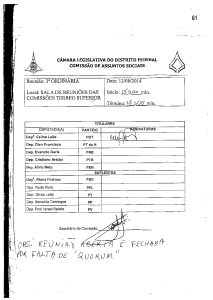 61
CÂMARA LEGISLATIVA DO DISTRITO FEDERAL
COMISSÃO DE ASSUNTOS SOCIAIS
Reunião: 3ª ORDINÁRIA
Data: 12/08/2014
Local: SALA DE REUNIÕES DAS
COMISSÕES TÉRREO SUPERIOR
Início:
Término:
TITULARES
DEPUTADO(A) PARTIDO ASSINATURAS
Depª. Celina Leão PDT
Dep. Olair Francisco PT do B
Dep. Evandro Garla PRB
Dep. Cristiano Araújo PTB
Dep. Alírio Neto PEN
SUPLENTES
Depª. Eliana Pedrosa PSD
Dep. Paulo Roriz
Dep. Chico Leite PT
Dep. Benedito Domingos PP
Dep. Prof. Israel Batista PV
Secretário da Comissão
OBS. REUNIÃO ABERTA E FECHADA
POR FALTA DE "QUORUM"